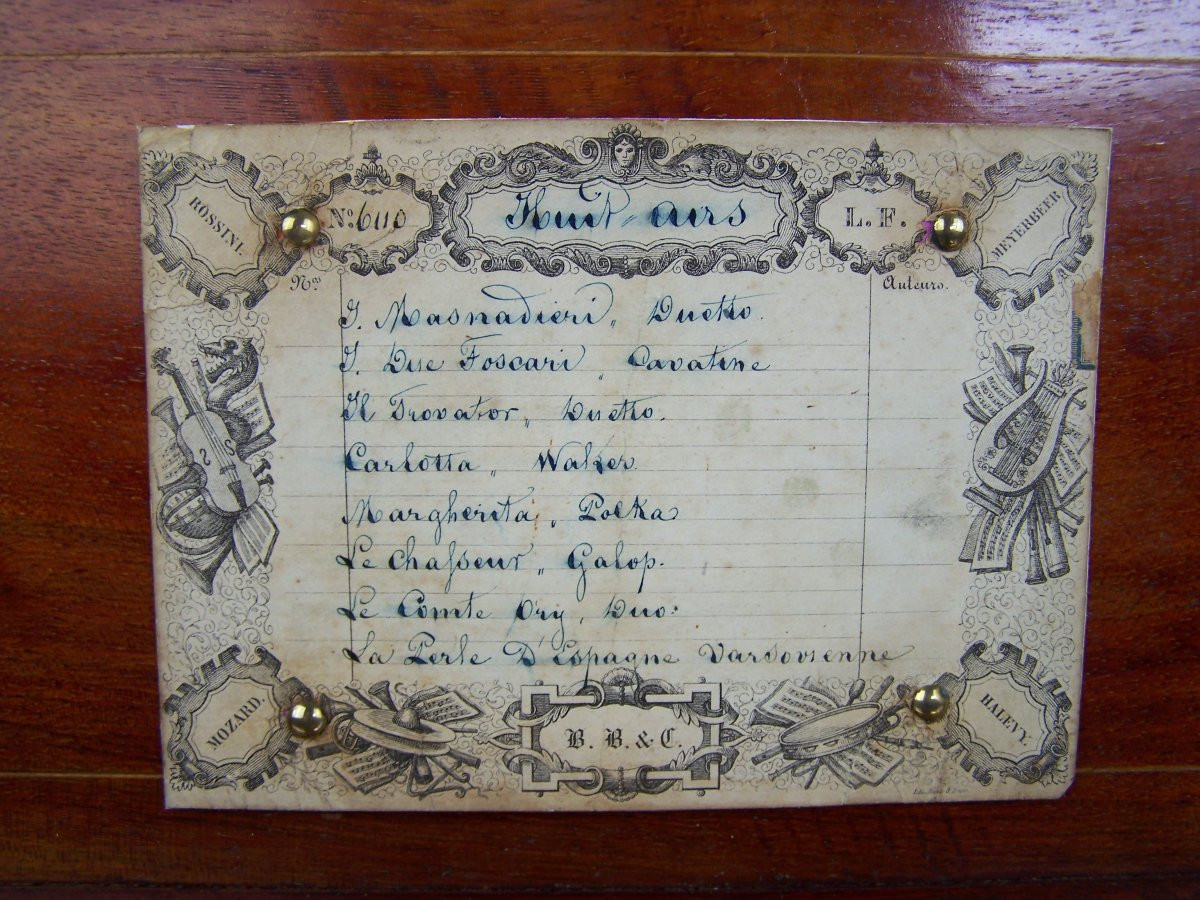 ROSSINI.
No. 6110
Huit airs
L. F.
MEYERBEER
Nos
Auteurs.
I. Masnadieri, Duetto.
I. Due Foscari, Cavatine
Il Trovator, Duetto.
Carlotta, Walzer
Margherita, Polka
Le chasseur, Galop.
Le Comte Ory, Duo.
La Perle D'Espagne Varsovienne
MOZARD.
B. B. & C.
HALEVY.